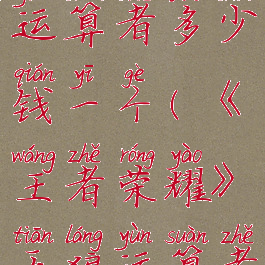 运算者多少
qián yī gè
钱一个(《
wáng zhě róng yào
王者荣耀》
tiān láng yùn suàn zhě
天狼运算者